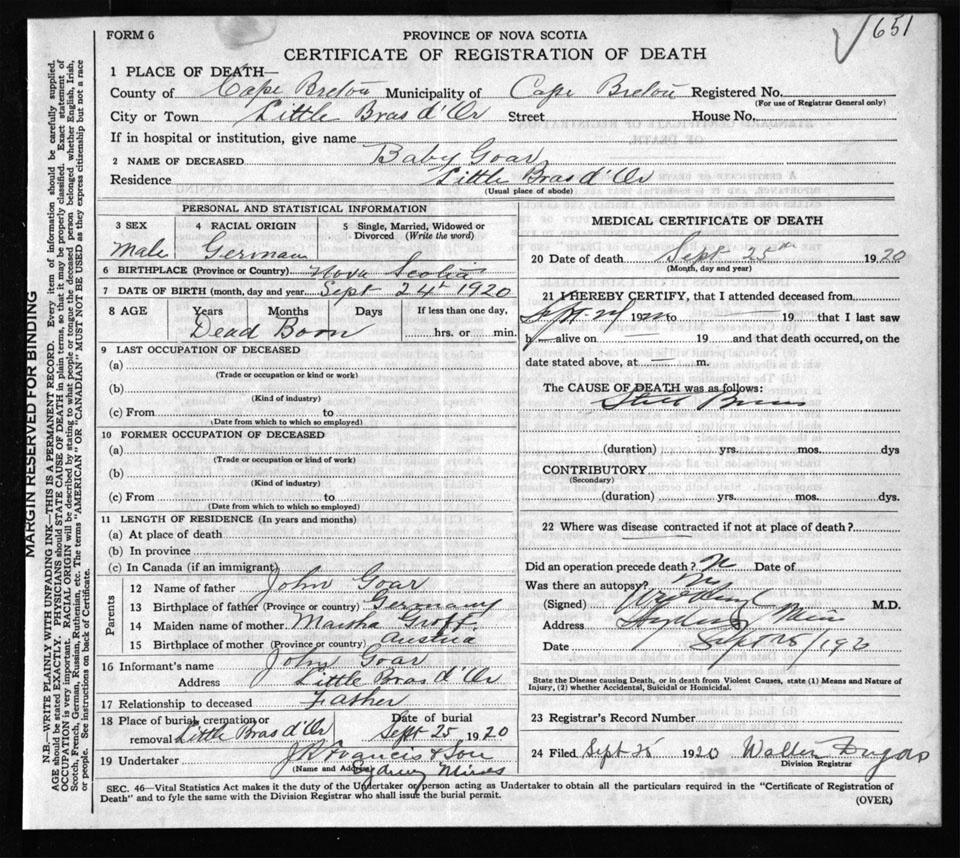 FORM 6
PROVINCE OF NOVA SCOTIA
651
CERTIFICATE OF REGISTRATION OF DEATH
1 PLACE OF DEATH—
County of Cape Breton Municipality of Cape Breton Registered No.
(For use of Registrar General only)
City or Town Little Bras d'Or Street House No.
If in hospital or institution, give name
2 NAME OF DECEASED Baby Goar
Residence Little Bras d'Or
(Usual place of abode)
PERSONAL AND STATISTICAL INFORMATION
3 SEX 4 RACIAL ORIGIN 5 Single, Married, Widowed or
Divorced (Write the word)
Male German
6 BIRTHPLACE (Province or Country) Nova Scotia
7 DATE OF BIRTH (month, day and year Sept 24t 1920
8 AGE Years Months Days If less than one day,
Dead Born hrs. or min.
9 LAST OCCUPATION OF DECEASED
(a)
(Trade or occupation or kind or work)
(b)
(Kind of industry)
(c) From to
(Date from which to which so employed)
10 FORMER OCCUPATION OF DECEASED
(a)
(Trade or occupation or kind of work)
(b)
(Kind of industry)
(c) From to
(Date from which to which so employed)
11 LENGTH OF RESIDENCE (In years and months)
(a) At place of death
(b) In province
(c) In Canada (if an immigrant)
Parents
12 Name of father John Goar
13 Birthplace of father (Province or country) Germany
14 Maiden name of mother Martha Groff
15 Birthplace of mother (Province or country) Austria
16 Informant's name John Goar
Address Little Bras d'Or
17 Relationship to deceased Father
18 Place of burial, cremation or Date of burial
removal Little Bras d'Or Sept 25 1920
19 Undertaker Francis & Son
(Name and Address) Sydney Mines
MEDICAL CERTIFICATE OF DEATH
20 Date of death Sept 25th 1920
(Month, day and year)
21 I HEREBY CERTIFY, that I attended deceased from
Sept 192 to 19 that I last saw
h alive on 19 and that death occurred, on the
date stated above, at m.
The CAUSE OF DEATH was as follows:
Still Born
(duration) yrs. mos. dys
CONTRIBUTORY
(Secondary)
(duration) yrs. mos. dys.
22 Where was disease contracted if not at place of death?
Did an operation precede death? N Date of
Was there an autopsy? No
(Signed) M.D.
Address Sydney Mines
Date Sept 25/192
State the Disease causing Death, or in death from Violent Causes, state (1) Means and Nature of
Injury, (2) whether Accidental, Suicidal or Homicidal.
23 Registrar's Record Number
24 Filed Sept 25 1920 Walter
Division Registrar
SEC. 46—Vital Statistics Act makes it the duty of the Undertaker or person acting as Undertaker to obtain all the particulars required in the "Certificate of Registration of
Death" and to fyle the same with the Division Registrar who shall issue the burial permit.
(OVER)
MARGIN RESERVED FOR BINDING
N.B.—WRITE PLAINLY WITH UNFADING INK—THIS IS A PERMANENT RECORD. Every item of information should be carefully supplied.
AGE should be stated EXACTLY. PHYSICIANS should STATE CAUSE OF DEATH in plain terms, so that it may be properly classified. Exact statement of
OCCUPATION is very important. RACIAL ORIGIN will be described by stating to what people or tongue the deceased person belonged whether English, Irish,
Scotch, French, German, Russian, Ruthenian, etc. The terms "AMERICAN" OR "CANADIAN" MUST NOT BE USED as they express citizenship but not a race
or people. See instructions on back of Certificate.